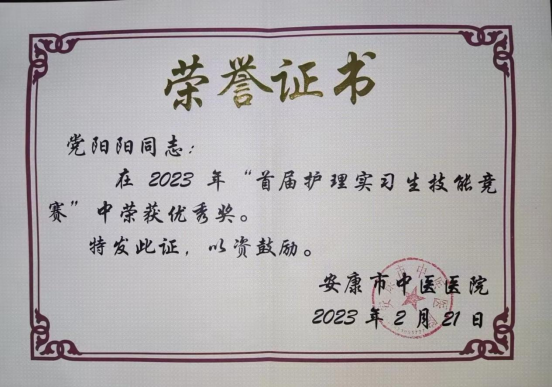 荣誉证书
党阳阳同志:
在 2023 年“首届护理实习生技能竞
赛”中荣获优秀奖。
特发此证,以资鼓励。
安康市中医医院
2023 年 2 月 21 日